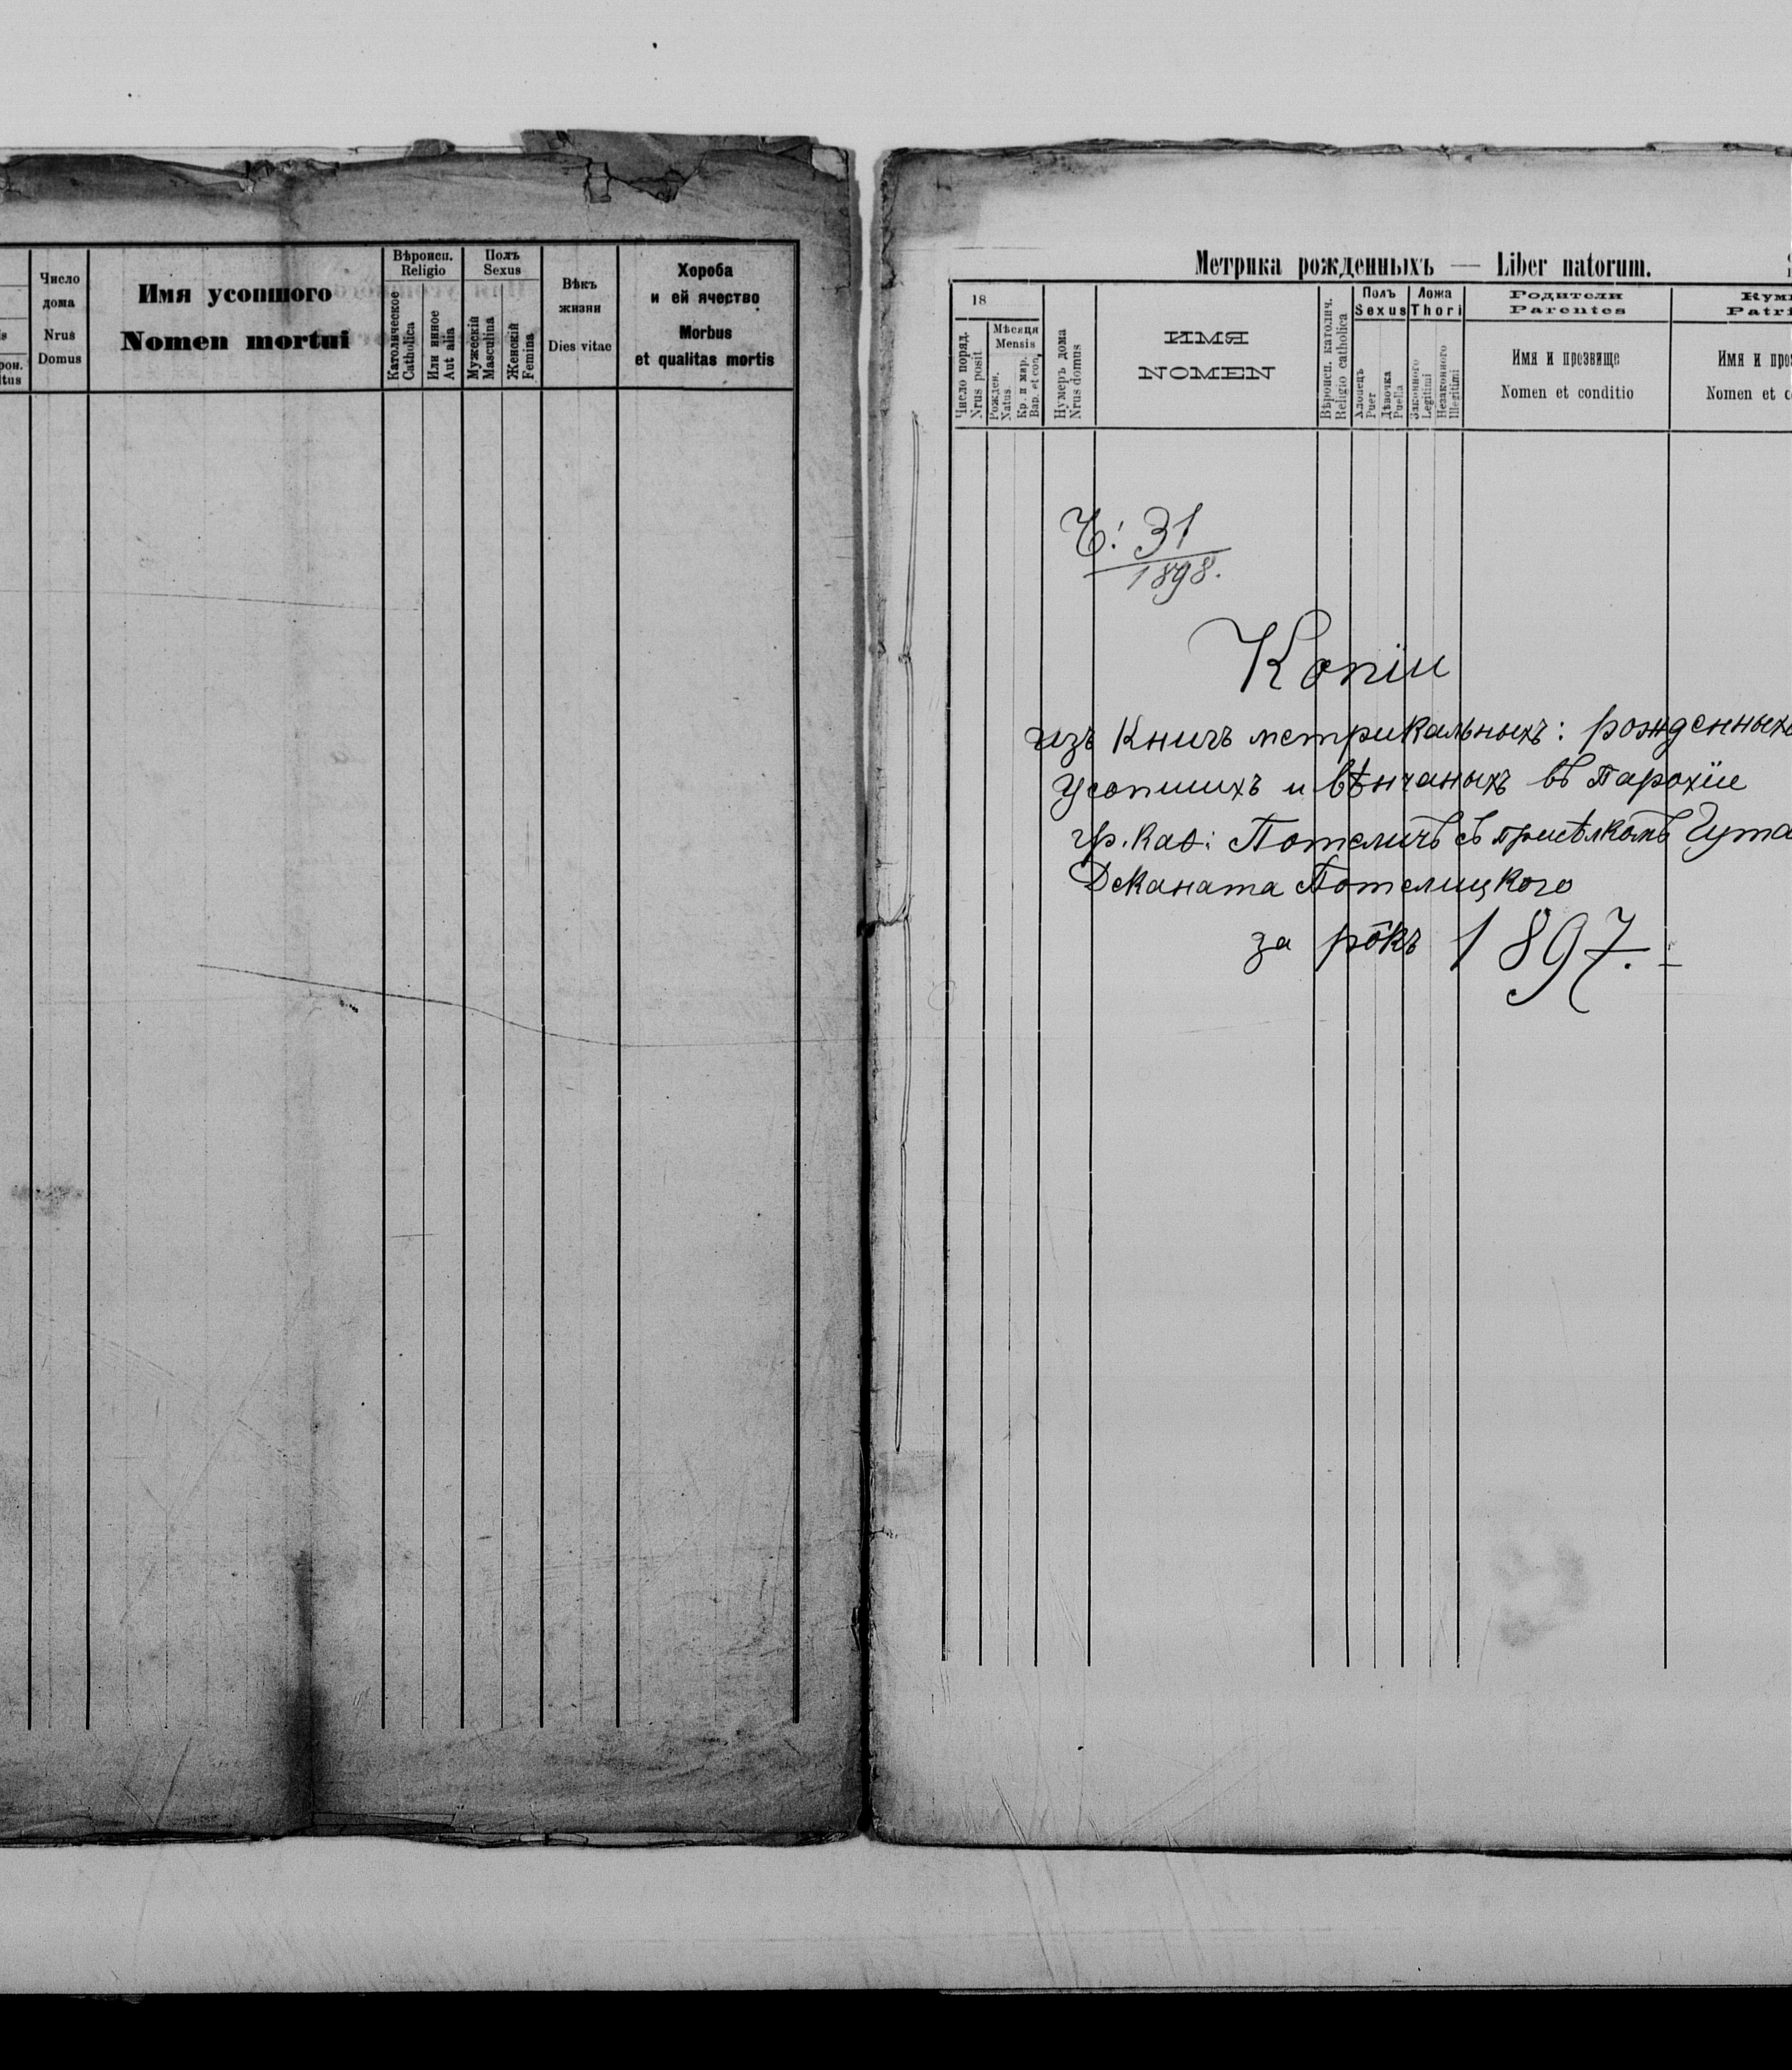 Число
дома
Nrus
Domus
Имя усопшого
Nomen mortui
Вѣроисп.
Religio
Католическое
Catholica
Или инное
Aut alia
Полъ
Sexus
Мужескій
Masculina
Женскій
Femina
Вѣкъ
жизни
Dies vitae
Хороба
и ей ячество
Morbus
et qualitas mortis
Метрика рожденныхъ — Liber natorum.
18
Число поряд.
Nrus posit
Мѣсяця
Mensis
Рожден.
Natus.
Кр. и мѵр.
Bap. et con.
Нумеръ дома
Nrus domus
ИМЯ
NOMEN
Вѣроисп. католич.
Religio catholica
Полъ
Sexus
Хлопецъ
Puer
Дѣвочка
Puella
Ложа
Thori
Законного
Legitimi
Незаконного
Illegitimi
Родители
Parentes
Имя и презвище
Nomen et conditio
Кум
Patri
Имя и пре
Nomen et c
Ч: 31
1898.
Копіи
изъ Книгъ метрикальныхъ: рожденныхъ
усопшихъ и вѣнчаныхъ въ Парохіи
гр. каѳ: Потеличъ съ присѣлкомъ Гута
Деканата Потелицкого
за рôкъ 1897.